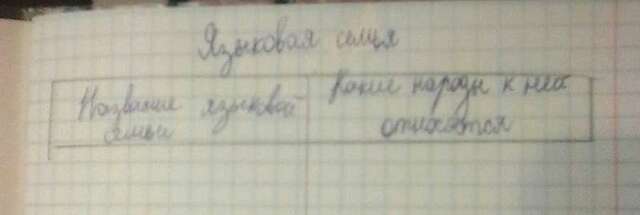 Языковая семья
Название языковой
семьи
Какие народы к ней
относятся